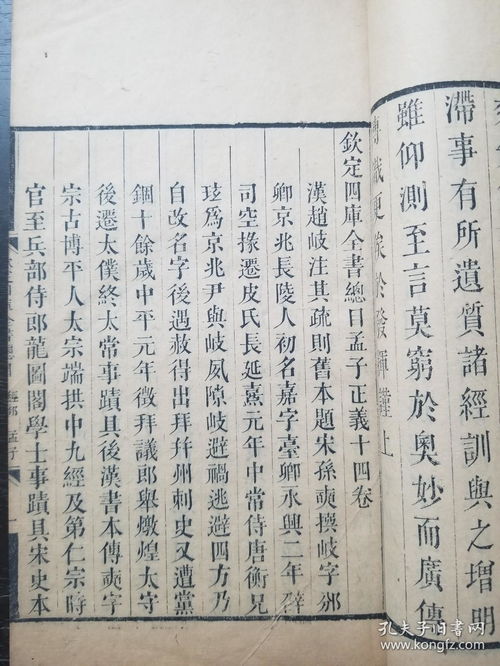 滯事有所遺質諸經訓與之增明
雖仰測至言莫窮於奧妙而廣傳
博識更俟於發揮謹上
欽定四庫全書總目孟子正義十四卷
漢趙岐注其疏則舊本題宋孫奭撰岐字邠
卿京兆長陵人初名嘉字臺卿永興二年辟
司空掾遷皮氏長延熹元年中常侍唐衡兄
玹爲京兆尹與岐夙隙岐避禍逃避四方乃
自改名字後遇赦得出拜并州刺史又遭黨
錮十餘歲中平元年徵拜議郎舉燉煌太守
後遷太僕終太常事蹟具後漢書本傳奭字
宗古博平人太宗端拱中九經及第仁宗時
官至兵部侍郎龍圖閣學士事蹟具宋史本
孔夫子旧书网
www.kongfz.com